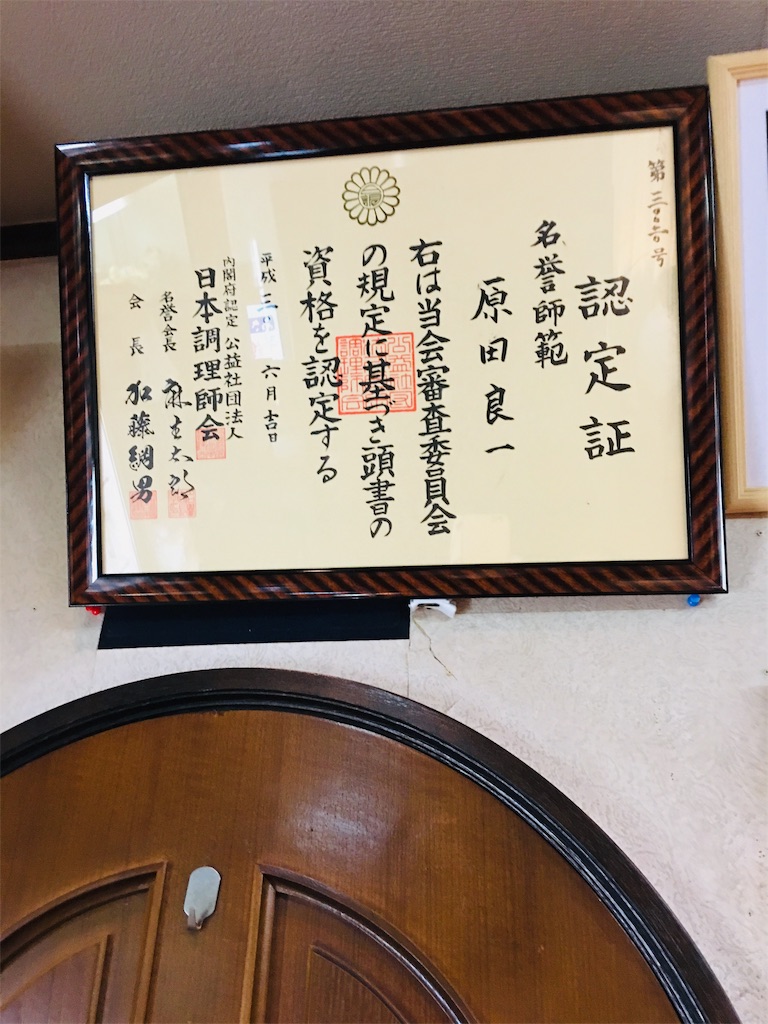 認定証
名誉師範
原田良一
右は当会審査委員会
の規定に基づき頭書の
資格を認定する
六月吉日
内閣府認定 公益社団法人
日本調理師会
名誉会長 麻生太郎
会長 加藤綱男